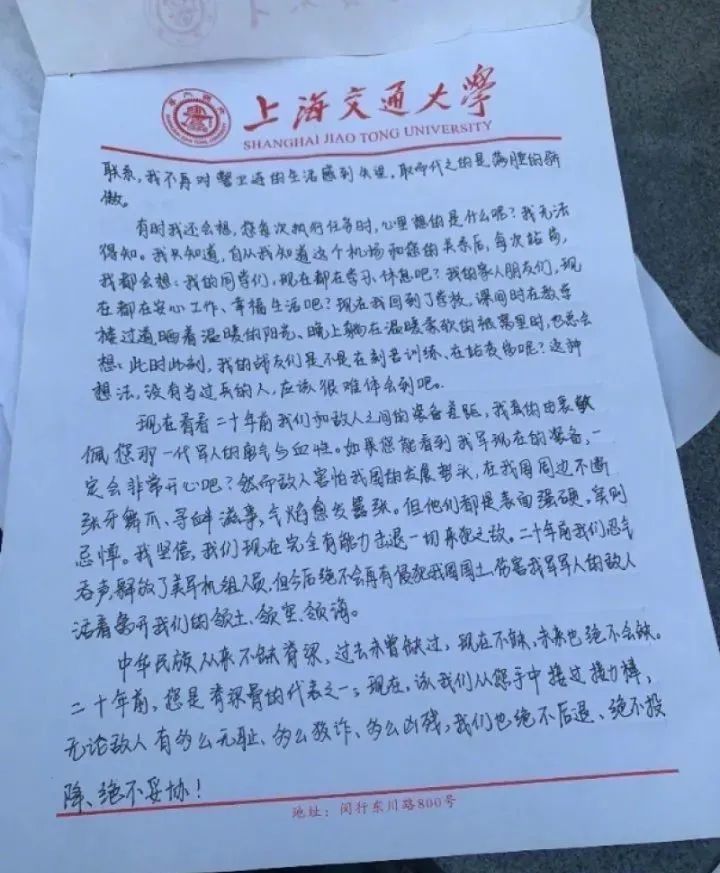 上海交通大学
SHANGHAI JIAO TONG UNIVERSITY
联系,我不再对警卫连的生活感到失望,取而代之的是满腔的骄
傲。
有时我还会想,您首次执行任务时,心里想的是什么呢?我无法
得知。我只知道,自从我知道这个机场和您的关系后,每次站岗,
我都会想:我的同学们,现在都在学习、休息吧?我的家人朋友们,现
在都在安心工作、幸福生活吧?现在我回到了学校,课间时在教学
楼过道晒着温暖的阳光、晚上躺在温暖柔软的被窝里时,也总会
想:此时此刻,我的战友们是不是在刻苦训练、在站夜岗呢?这种
想法,没有当过兵的人,应该很难体会到吧。
现在看看二十年前我们和敌人之间的装备差距,我真的由衷敬
佩您那一代军人的勇气与血性。如果您能看到我军现在的装备,一
定会非常开心吧?然而敌人害怕我国的发展势头,在我国周边不断
张牙舞爪、寻衅滋事,气焰愈发嚣张。但他们都是表面强硬,实则
忌惮。我坚信,我们现在完全有能力击退一切来犯之敌。二十年前我们忍气
吞声,释放了美军机组人员,但今后绝不会再有侵犯我国国土、伤害我军军人的敌人
活着离开我们的领土、领空、领海。
中华民族从来不缺脊梁,过去未曾缺过,现在不缺,未来也绝不会缺。
二十年前,您是脊梁骨的代表之一;现在,该我们从您手中接过接力棒,
无论敌人有多么无耻、多么狡诈、多么凶残,我们也绝不后退、绝不投
降、绝不妥协!
地址:闵行东川路800号